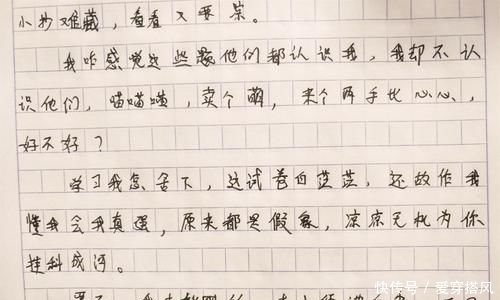 小抄难藏，看看又要杀。
我咋感觉这些题他们都认识我，我却不认
识他们，喵喵喵，卖个萌，来个两手比心心，
好不好？
学习我怎舍下，这试卷白茫茫，还故作我
懂我会我真强，原来都是假象，凉凉无机为你
挂科成河。
快传号／爱穿搭风